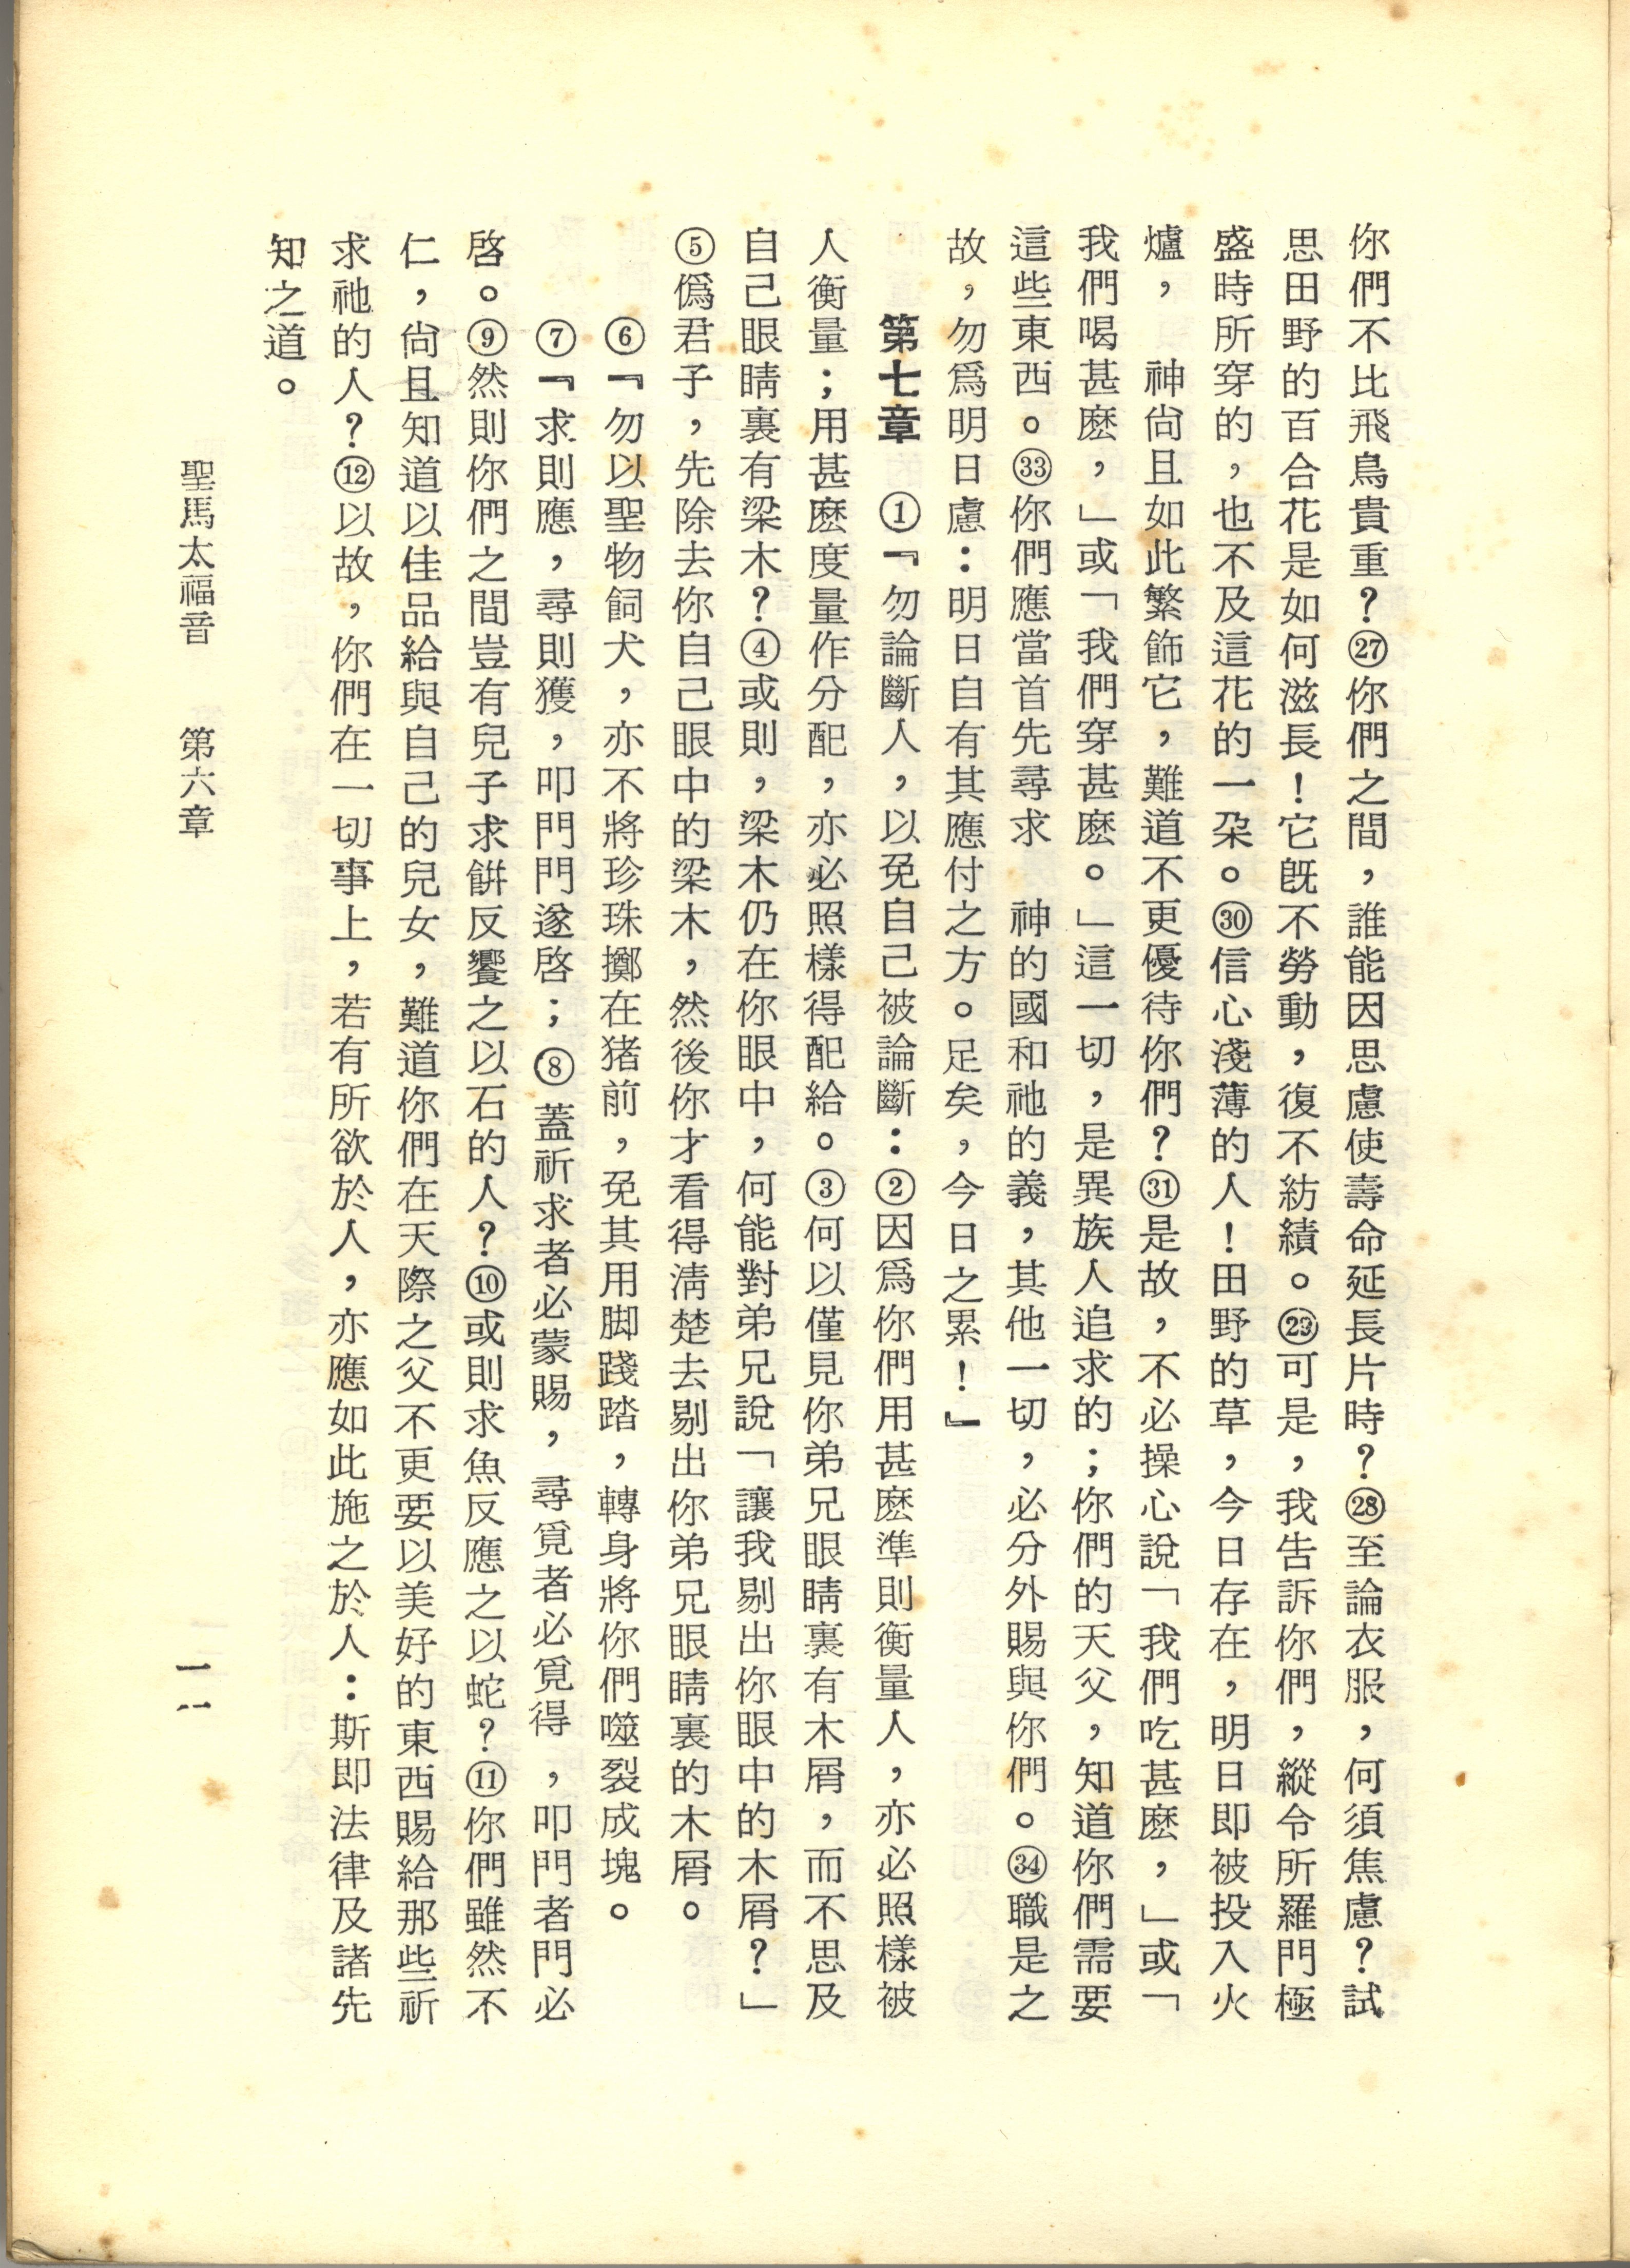 你們不比飛鳥貴重？㉗你們之間，誰能因思慮使壽命延長片時？㉘至論衣服，何須焦慮？試
思田野的百合花是如何滋長！它既不勞動，復不紡績。㉙可是，我告訴你們，縱令所羅門極
盛時所穿的，也不及這花的一朶。㉚信心淺薄的人！田野的草，今日存在，明日即被投入火
爐，　神尙且如此繁飾它，難道不更優待你們？㉛是故，不必操心說「我們吃甚麽，」或「
我們喝甚麽，」或「我們穿甚麽。」這一切，是異族人追求的；你們的天父，知道你們需要
這些東西。㉝你們應當首先尋求　神的國和祂的義，其他一切，必分外賜與你們。㉞職是之
故，勿爲明日慮：明日自有其應付之方。足矣，今日之累！』
第七章　①『勿論斷人，以免自己被論斷：②因爲你們用甚麽準則衡量人，亦必照樣被
人衡量；用甚麽度量作分配，亦必照樣得配給。③何以僅見你弟兄眼睛裏有木屑，而不思及
自己眼睛裏有梁木？④或則，梁木仍在你眼中，何能對弟兄說「讓我剔出你眼中的木屑？」
⑤僞君子，先除去你自己眼中的梁木，然後你才看得淸楚去剔出你弟兄眼睛裏的木屑。
⑥『勿以聖物飼犬，亦不將珍珠擲在猪前，免其用脚踐踏，轉身將你們噬裂成塊。
⑦『求則應，尋則獲，叩門門遂啓；⑧蓋祈求者必蒙賜，尋覓者必覓得，叩門者門必
啓。⑨然則你們之間豈有兒子求餅反饗之以石的人？⑩或則求魚反應之以蛇？⑪你們雖然不
仁，尙且知道以佳品給與自己的兒女，難道你們在天際之父不更要以美好的東西賜給那些祈
求祂的人？⑫以故，你們在一切事上，若有所欲於人，亦應如此施之於人：斯即法律及諸先
知之道。
聖馬太福音　第六章
一一